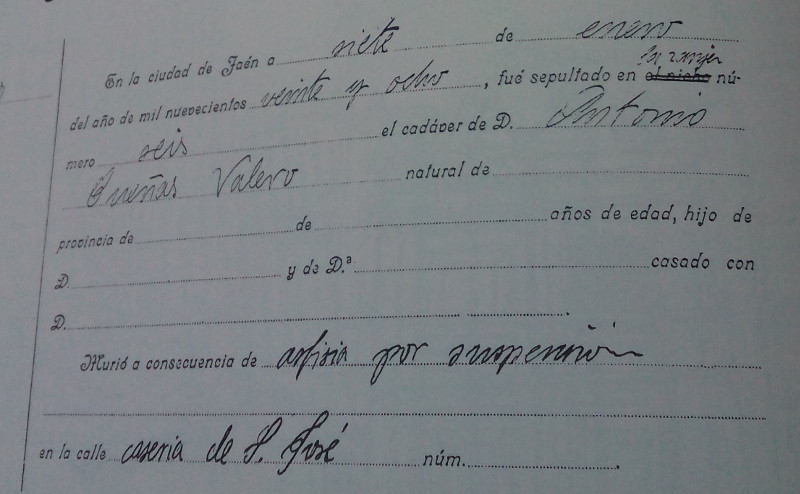 En la ciudad de Jaén a siete de enero
del año de mil nuevecientos veinte y ocho, fué sepultado en la zanja el nicho nú-
mero seis el cadáver de D. Antonio
Dueñas Valero natural de
provincia de de años de edad, hijo de
D. y de D.ª casado con
D.
Murió a consecuencia de asfisia por suspensión
en la calle caseria de S. José núm.